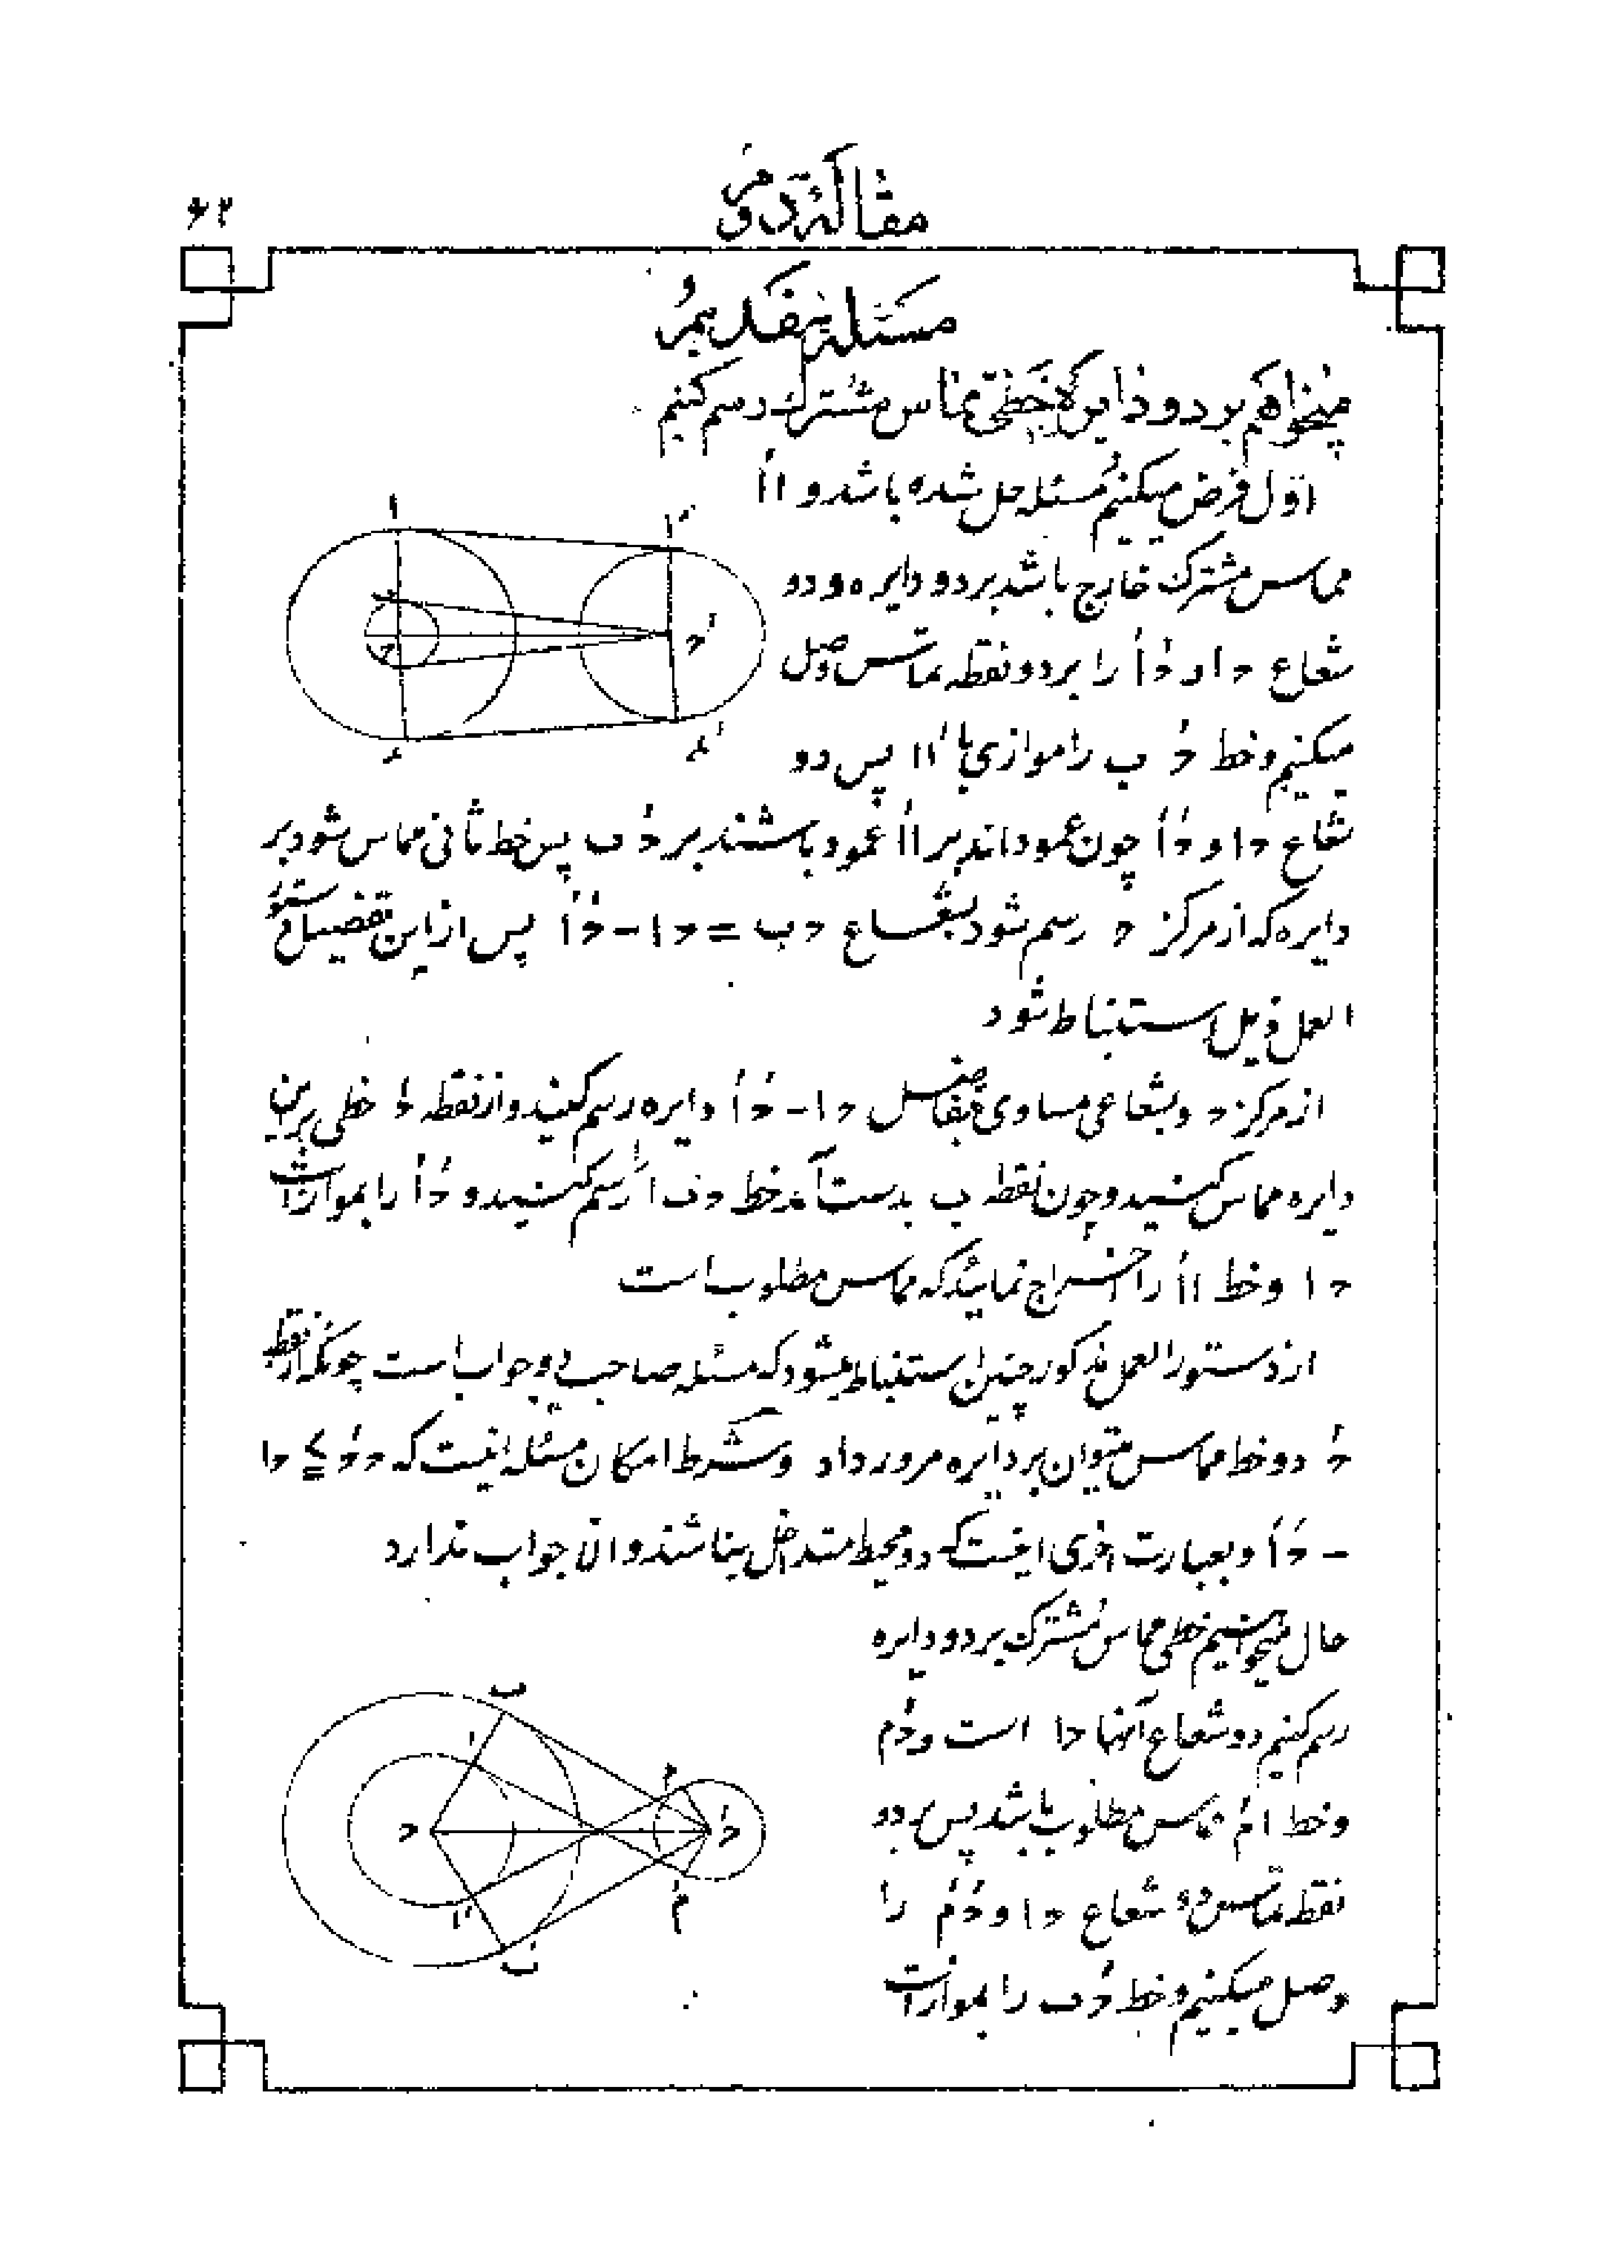 مقالهٔ دوم
۶۲
مسئله هفدهم
میخواهیم بر دو دایره خطی مماس مشترک رسم کنیم
اول فرض میکنیم مسئله حل شده باشد و ااَ
مماس مشترک خارج باشد بر دو دایره و دو
شعاع حا و حَاَ را بر دو نقطه تماس وصل
میکنیم و خط حَ ب را موازی با ااَ پس دو
شعاع حا و حَاَ چون عمود اند بر ااَ عمود باشند بر حَ ب پس خط ثانی مماس شود بر
دایره که از مرکز ح رسم شود بشعاع حب = حا - حَاَ پس از این تفضیل دستور
العمل ذیل استنباط شود
از مرکز ح و بشعاعی مساوی بتفاضل حا - حَاَ دایره رسم کنید و از نقطه حَ خطی بر این
دایره مماس کنید و چون نقطه ب بدست آمد خط حب ا را رسم کنید و حَاَ را بموازات
حا و خط ااَ را اخراج نمائید که مماس مطلوب است
از دستور العمل مذکور چنین استنباط میشود که مسئله صاحب دو جواب است چونکه از نقطه
حَ دو خط مماس میتوان بر دایره مرور داد و شرط امکان مسئله اینست که ححَ ≥ حا
- حَاَ و بعبارت اخری اینست که دو محیط متداخل نباشند و الا جواب ندارد
حال میخواهیم خطی مماس مشترک بر دو دایره
رسم کنیم دو شعاع آنها حا است و حَم
و خط امَ مماس مطلوب باشد پس بر دو
نقطه تماس دو شعاع حا و حَمَ را
وصل میکنیم و خط حَب را بموازات
ا
اَ
ب
ح
حَ
ء
ءَ
ب
ا
م
ح
حَ
اَ
مَ
بَ